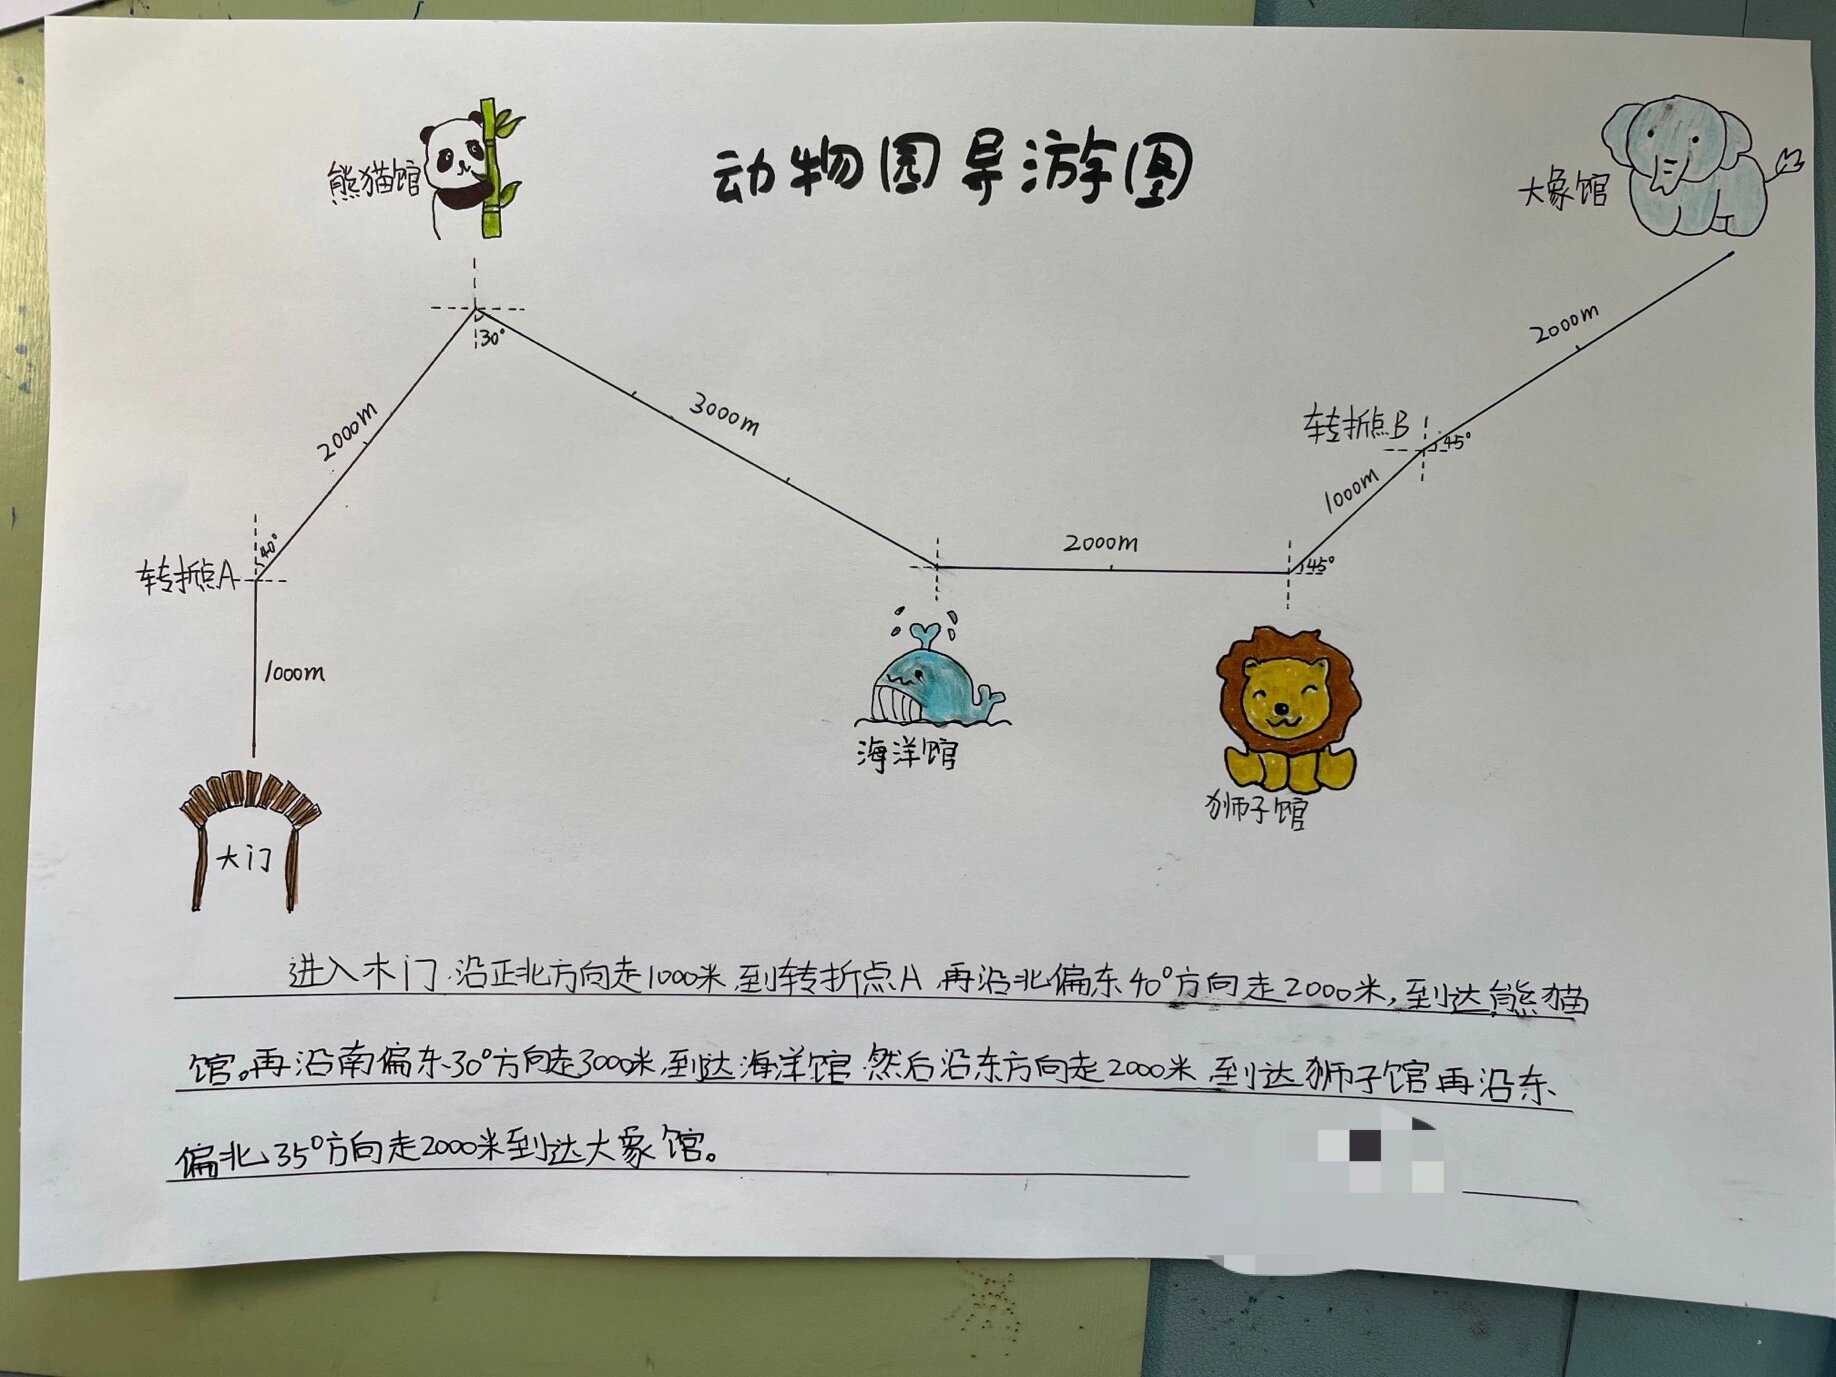 动物园导游图
熊猫馆
大象馆
30°
2000m
3000m
2000m
转折点B
45°
1000m
40°
转折点A
2000m
45°
1000m
海洋馆
狮子馆
大门
进入木门.沿正北方向走1000米.到转折点A.再沿北偏东40°方向走2000米,到达熊猫
馆。再沿南偏东30°方向走3000米.到达海洋馆.然后沿东方向走2000米.到达狮子馆再沿东
偏北35°方向走2000米到达大象馆。